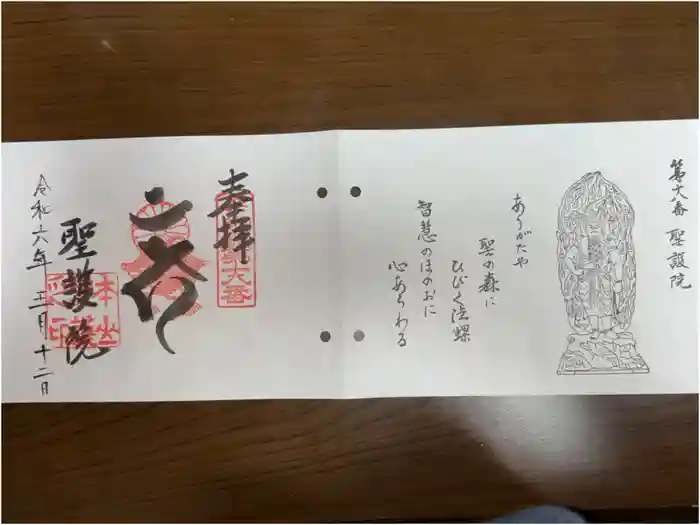 第十八番 聖護院
ありがたや
聖の森に
ひびく法螺
智慧のほのおに
心あらわる
奉拝
第十八番
聖護院
令和六年 五月十二日